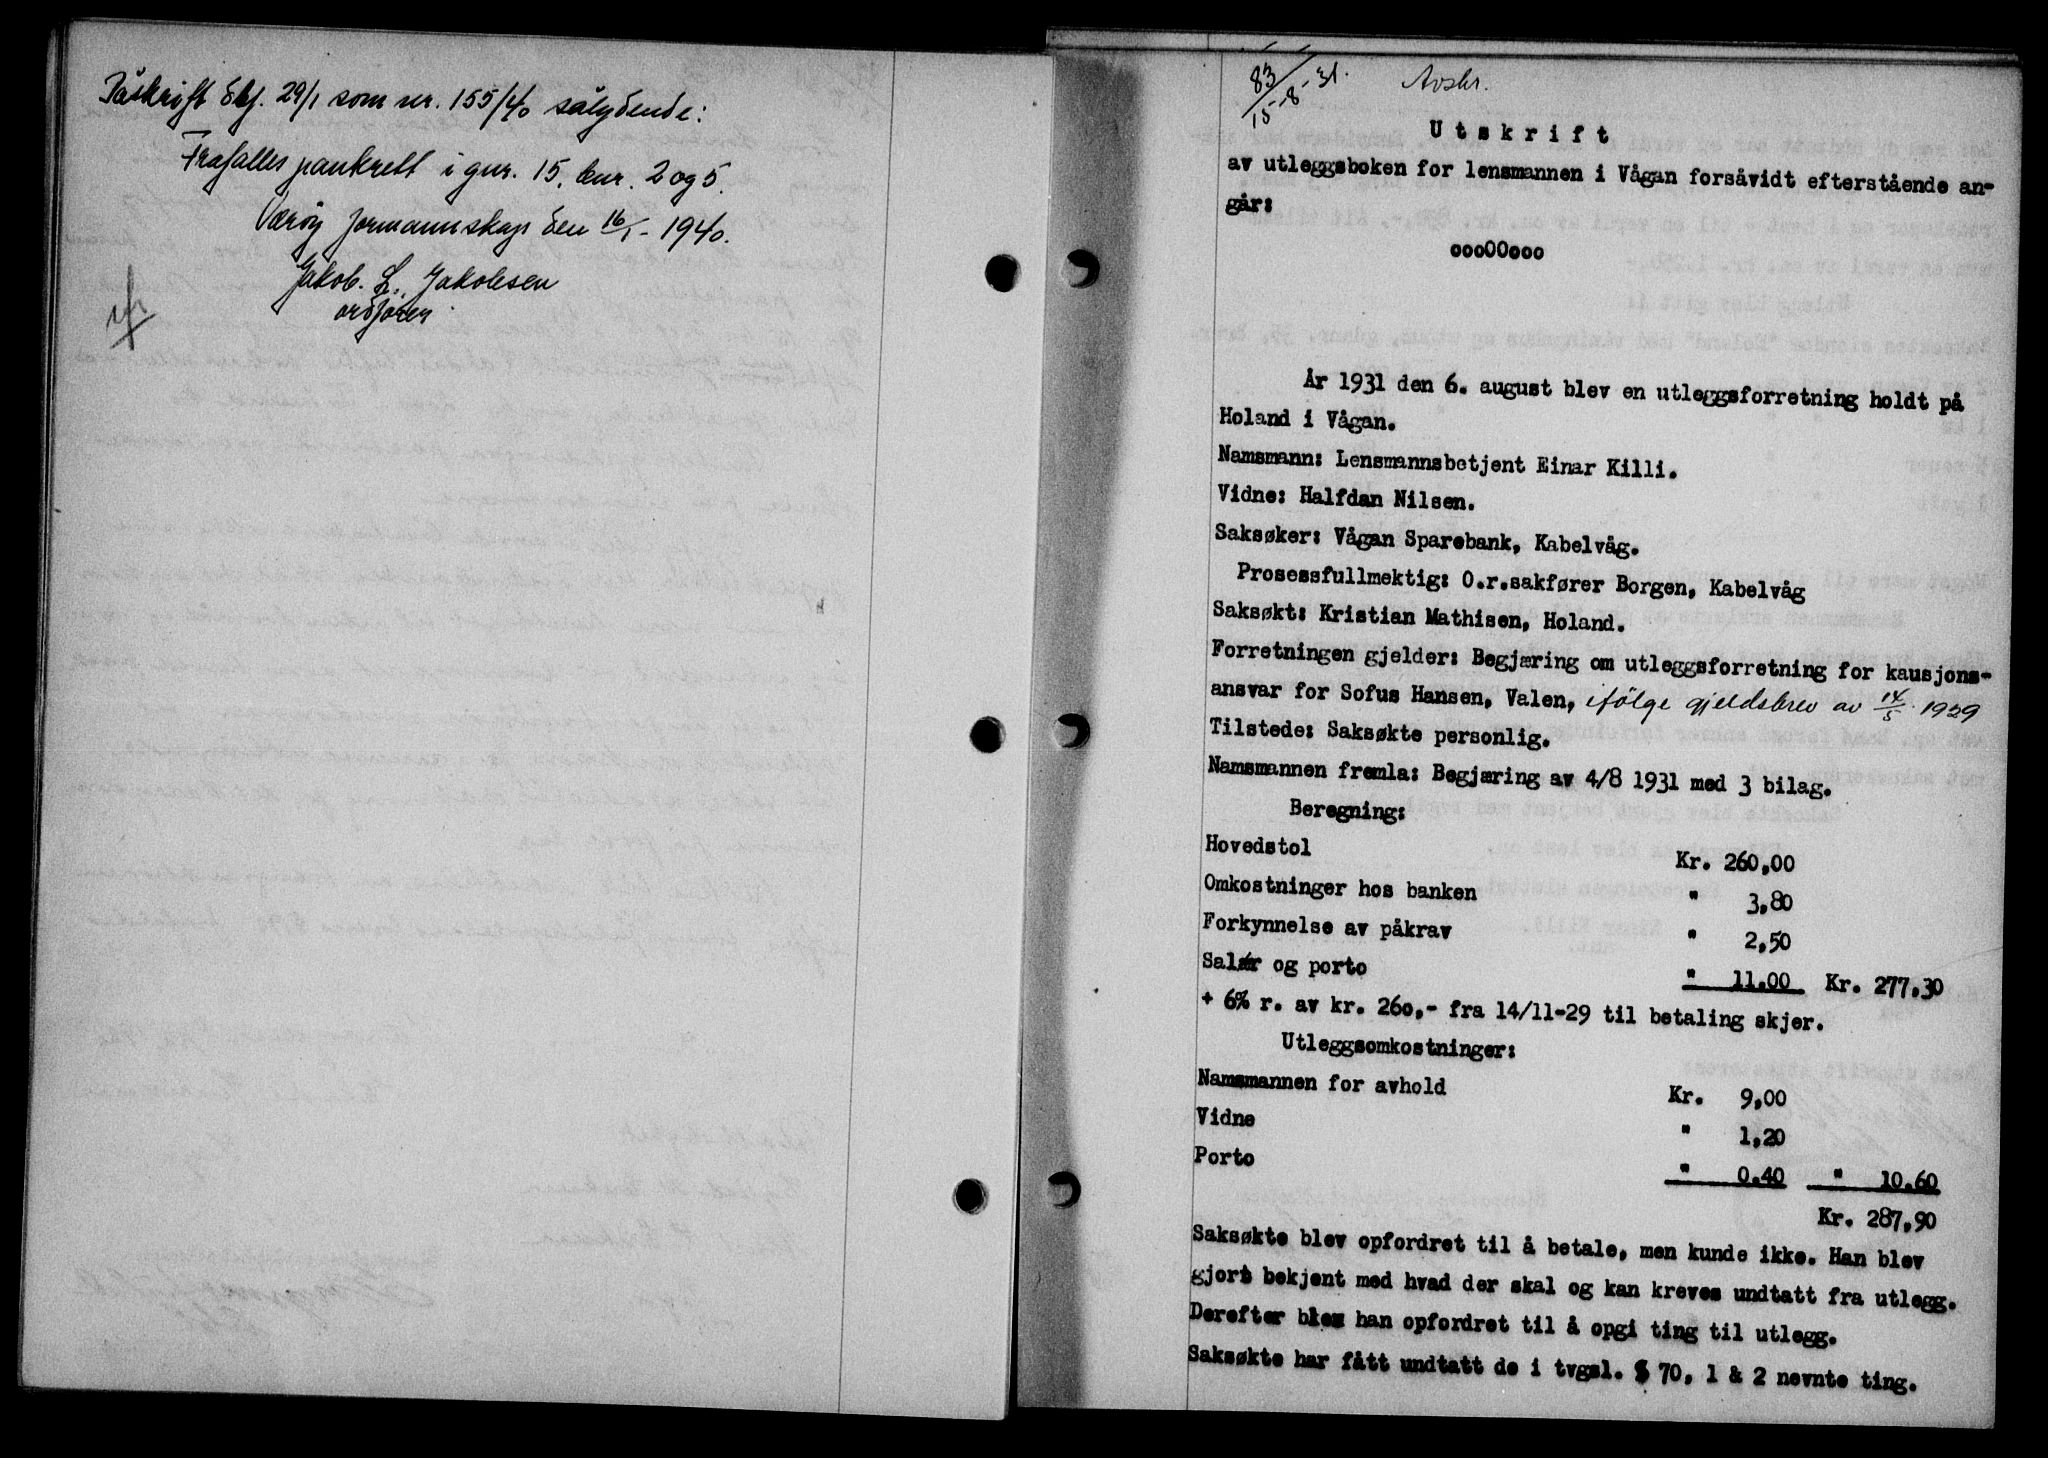 Påskrift dbf. 29/1 som nr. 155/40 sålydende:
Frafalles pantrett i gnr. 15, bnr. 2 og 5.
Værøy formannskap den 16/1 - 1940.
Jakob. L. Jakobsen
ordfører
83/15-8-31. Avskr.
Utskrift
av utleggsboken for lensmannen i Vågan forsåvidt efterstående an-
går:
ooo00ooo
År 1931 den 6. august blev en utleggsforretning holdt på
Holand i Vågan.
Namsmann: Lensmannsbetjent Einar Killi.
Vidne: Halfdan Nilsen.
Saksøker: Vågan Sparebank, Kabelvåg.
Prosessfullmektig: O.r.sakfører Borgen, Kabelvåg
Saksøkt: Kristian Mathisen, Holand.
Forretningen gjelder: Begjæring om utleggsforretning for kausjons-
ansvar for Sofus Hansen, Valen, ifölge gjeldsbrev av 14/5. 1929
Tilstede: Saksøkte personlig.
Namsmannen fremla: Begjæring av 4/8 1931 med 3 bilag.
Beregning:
Hovedstol Kr. 260,00
Omkostninger hos banken " 3,80
Forkynnelse av påkrav " 2,50
Salær og porto " 11.00 Kr. 277.30
+ 6% r. av kr. 260,- fra 14/11-29 til betaling skjer.
Utleggsomkostninger:
Namsmannen for avhold Kr. 9,00
Vidne " 1,20
Porto " 0.40 " 10.60
Kr. 287,90
Saksøkte blev opfordret til å betale, men kunde ikke. Han blev
gjort bekjent med hvad der skal og kan kreves undtatt fra utlegg.
Derefter blev han opfordret til å opgi ting til utlegg.
Saksøkte har fått undtatt de i tvgsl. § 70, 1 & 2 nevnte ting.